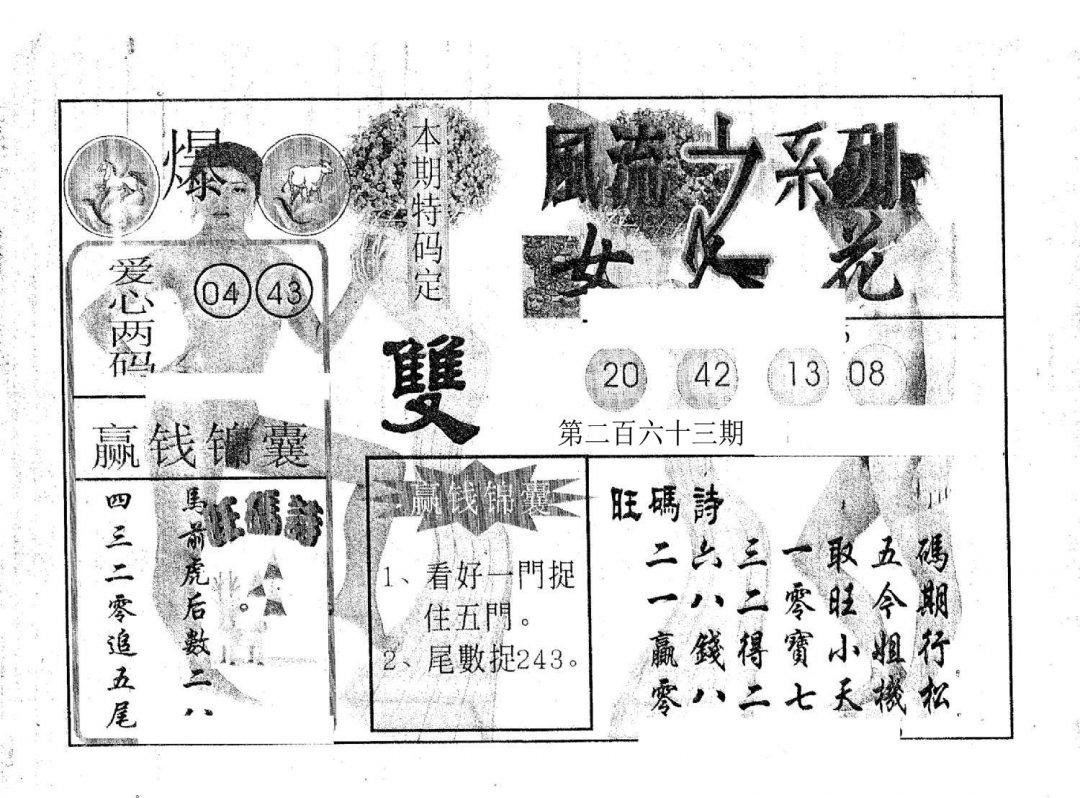 爆
本期特码定
雙
風流之系列
女人花
爱心两码
04 43
20 42 13 08
第二百六十三期
赢钱锦囊
旺碼詩
馬前虎后数二八
四三二零追五尾
赢钱锦囊
1、看好一門捉
住五門。
2、尾數捉243。
旺碼詩
二六三一取五碼
一八二零旺今期
贏錢得寶小姐行
零八二七天機松